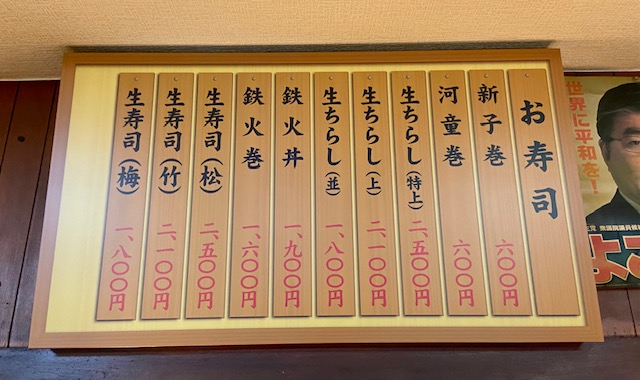 お寿司
新子巻 六〇〇円
河童巻 六〇〇円
生ちらし(特上) 二、五〇〇円
生ちらし(上) 二、一〇〇円
生ちらし(並) 一、八〇〇円
鉄火丼 一、九〇〇円
鉄火巻 一、六〇〇円
生寿司(松) 二、五〇〇円
生寿司(竹) 二、一〇〇円
生寿司(梅) 一、八〇〇円
世界に平和を!
衆議院議員候補